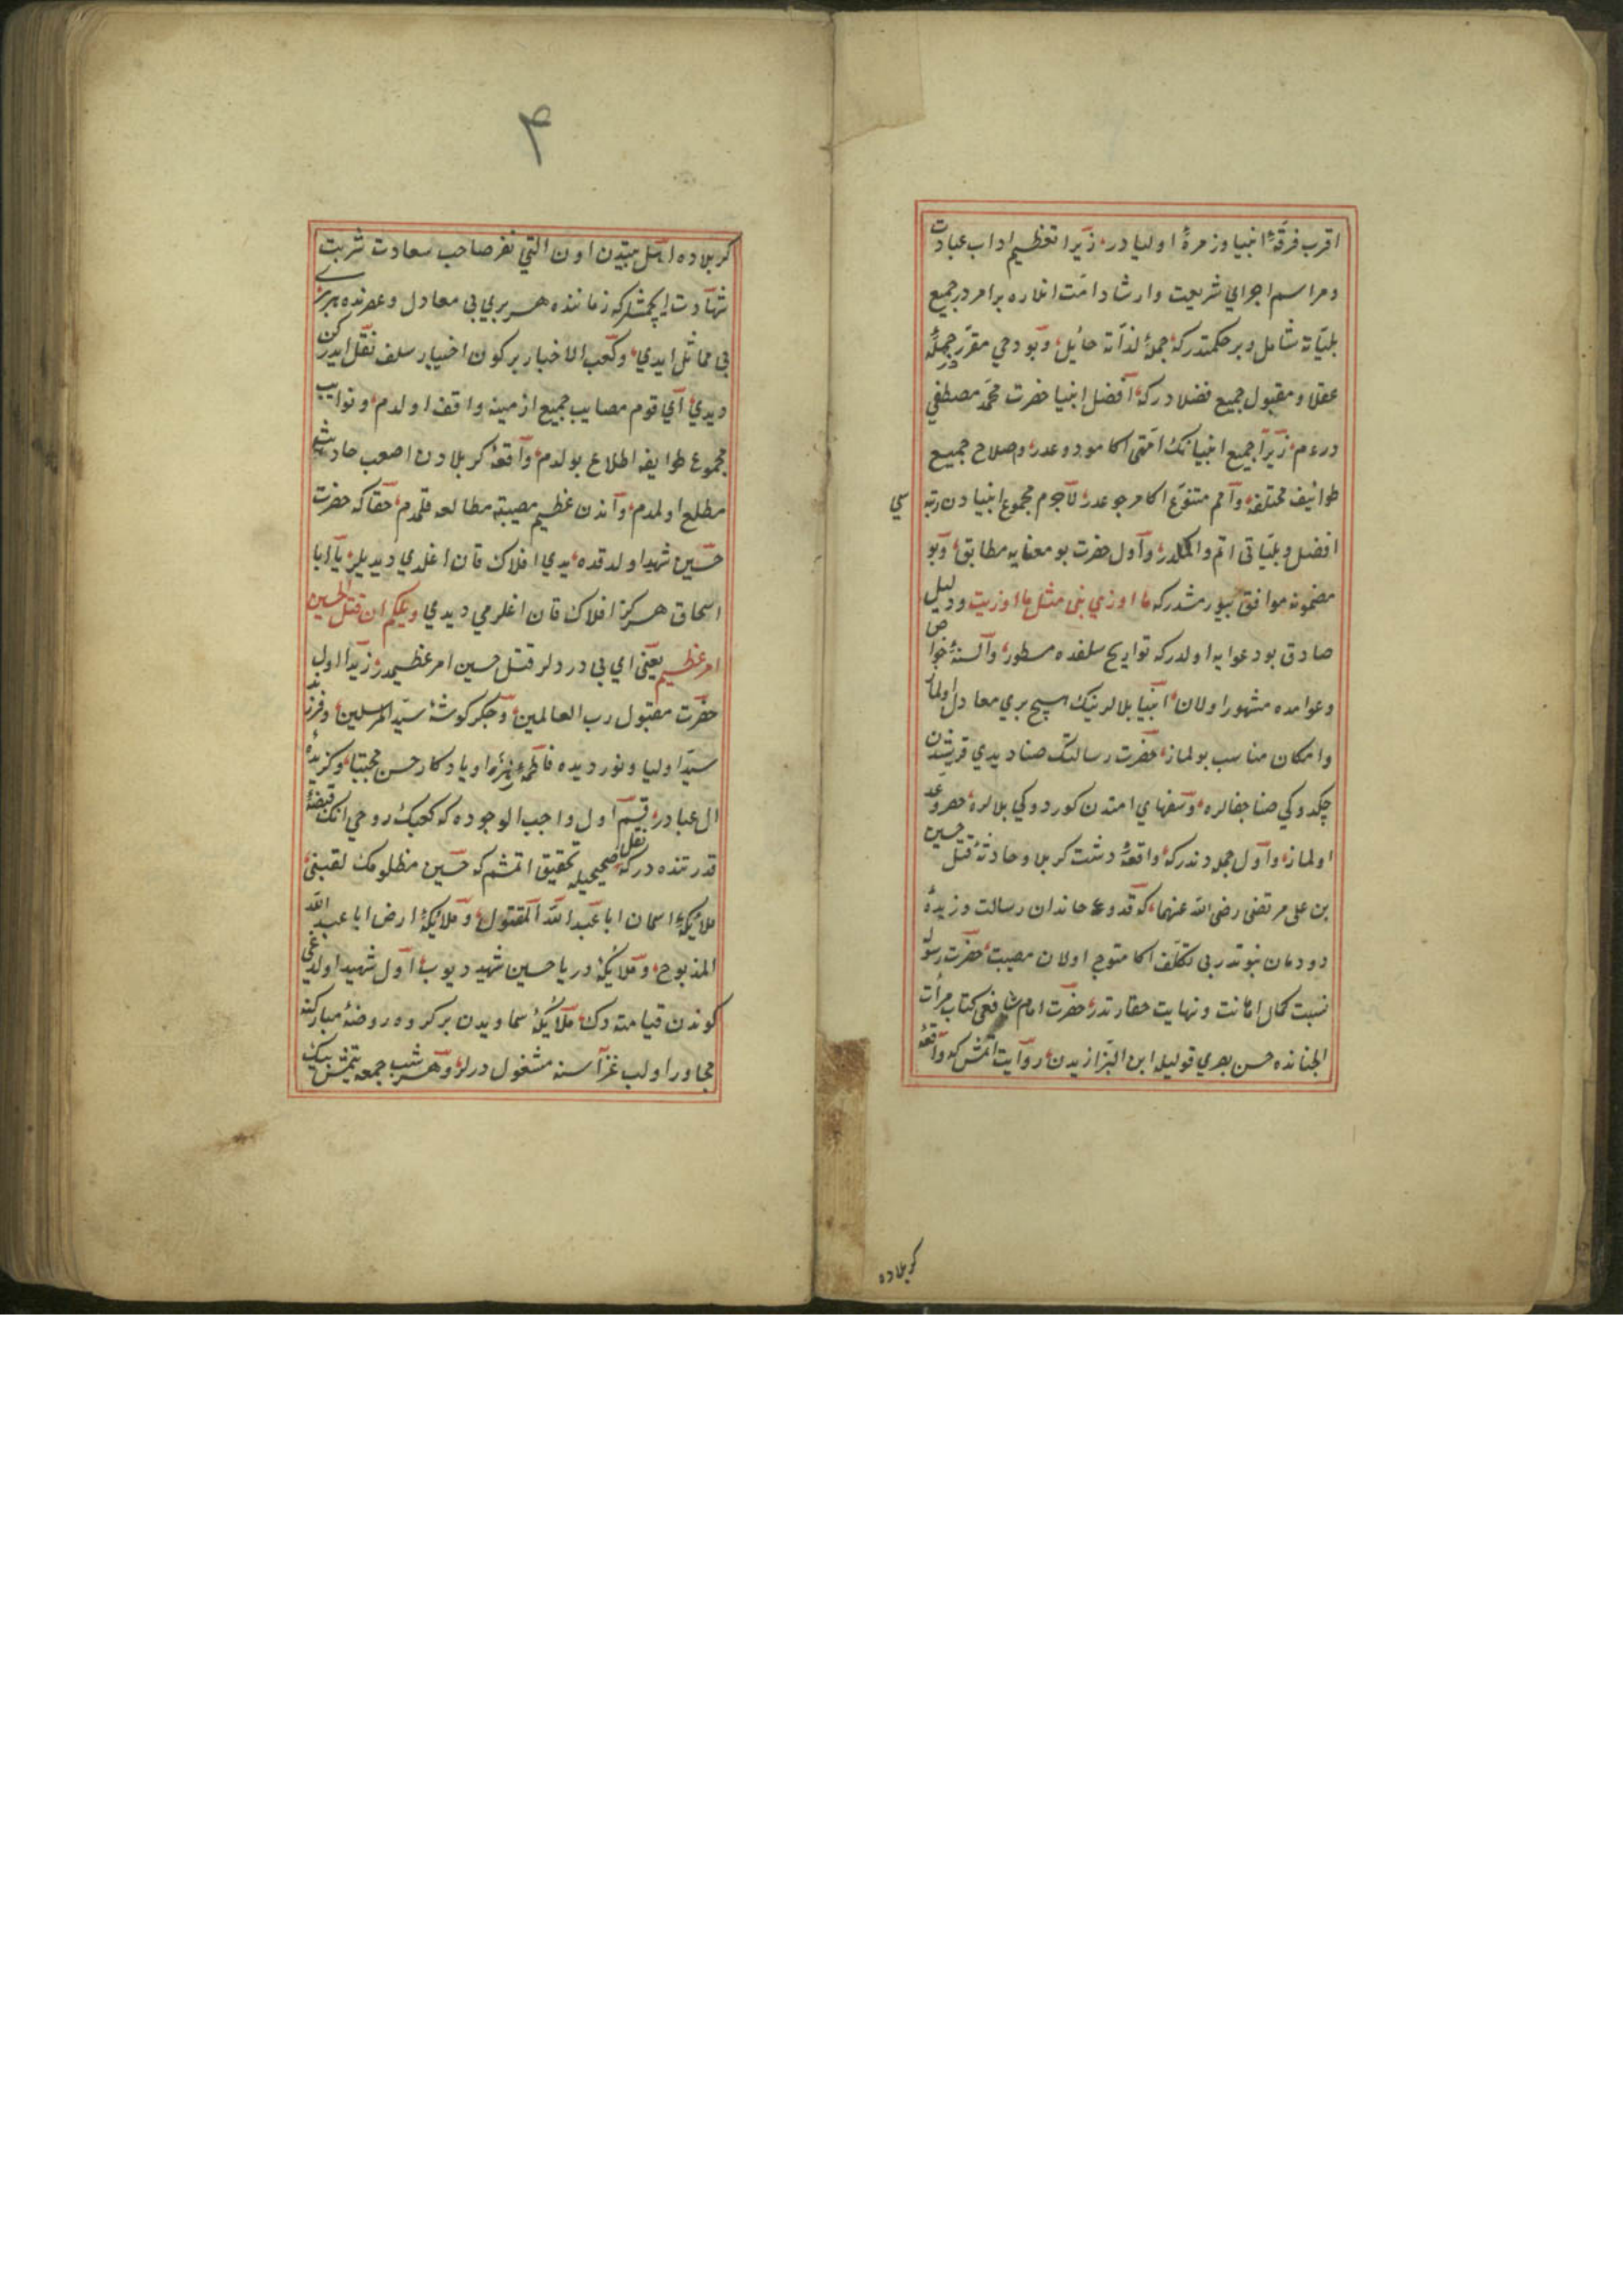 اقرب فرقهٔ انبیا و زمرهٔ اولیادر زیرا تعظیم اداب عبادت
و مراسم اجرای شریعت و ارشاد امت انلاره بر امردر جمیع
بلیاته شامل و بر حکمتدرکه جملهٔ لذاته حایل و بو دخی مقرر جملهٔ
عقلا و مقبول جمیع فضلادرکه افضل انبیا حضرت محمد مصطفی
درم زیرا جمیع انبیانك امتی اکا موعددر و صلاح جمیع
طوائف مختلفه و امم متنوع اکا مرجوعدر لاجرم مجموع انبیادن رتبه سی
افضل و بلیاتی اتم و اکملدر و اول حضرت بو معنایه مطابق و بو
مضمونه موافق بیورمشدرکه ما اوذی نبی مثل ما اوذیت و دلیل
صادق بو دعوایه اولدرکه تواریخ سلفده مسطور و السنهٔ خواص
و عوامده مشهور اولان انبیا بلالرینك هیچ بری معادل اولماز
و امکان مناسب بولماز حضرت رسالتك صنادیدی قریشدن
چکدوکی صنا جفالره و سفهای امتدن کوردوکی بلالره حصر و عد
اولماز و اول جمله دندرکه واقعهٔ دشت کربلا و حادثهٔ قتل حسین
بن علی مرتضی رضی الله عنهما که قدوهٔ خاندان رسالت و زبدهٔ
دودمان نبوتدر بی تکلف اکا متوجه اولان مصیبت حضرت رسوله
نسبت کمال اهانت و نهایت حقارتدر حضرت امام شافعی کتاب مرأت
الجنانده حسن بصری قولیله ابن البزازیدن روایت اتمش که واقعهٔ
کربلاده
۴
کربلاده اهل بیتدن اون التی نفر صاحب سعادت شربت
شهادت ایچمشلرکه زماننده هر بری بی معادل و عصرنده هر بری
بی مماثل ایدی و کعب الاخبار بر کون اخبار سلف نقل ایدرکن
دیدی ای قوم مصایب جمیع ازمینه واقف اولدم و نوایب
مجموع طوایفه اطلاع بولدم واقعهٔ کربلادن اصعب حادثه یه
مطلع اولمدم و اندن عظیم مصیبته مطالعه قلمدم حقا که حضرت
حسین شهید اولدقده یدی افلاك قان اغلدی دیدیلر یا ابا
اسحاق هرکز افلاك قان اغلرمی دیدی ویلکم ان قتل الحسین
امر عظیم یعنی ای بی دردلر قتل حسین امر عظیمدر زیرا اول
حضرت مقبول رب العالمین و جکر کوشهٔ سید المرسلین و فرزند
سید اولیا و نور دیده فاطمهٔ زهرا و یادکار حسن مجتبا و کزیدهٔ
ال عبادر قسم اول واجب الوجوده که کعبك روحی انك قبضهٔ
قدرتنده درکه نقل صحیحیله تحقیق اتمشم که حسین مظلومك لقبنی
ملائیکهٔ اسمان ابا عبد الله المقتول و ملائیکهٔ ارض ابا عبد الله
المذبوح و ملائیکهٔ دریا حسین شهید دیوب اول شهید اولدغی
کوندن قیامته دك ملائیکهٔ سماویدن بر کروه روضهٔ مبارکنه
مجاور اولب عزاسنه مشغول درلر و هر شب جمعه یتمش بیك